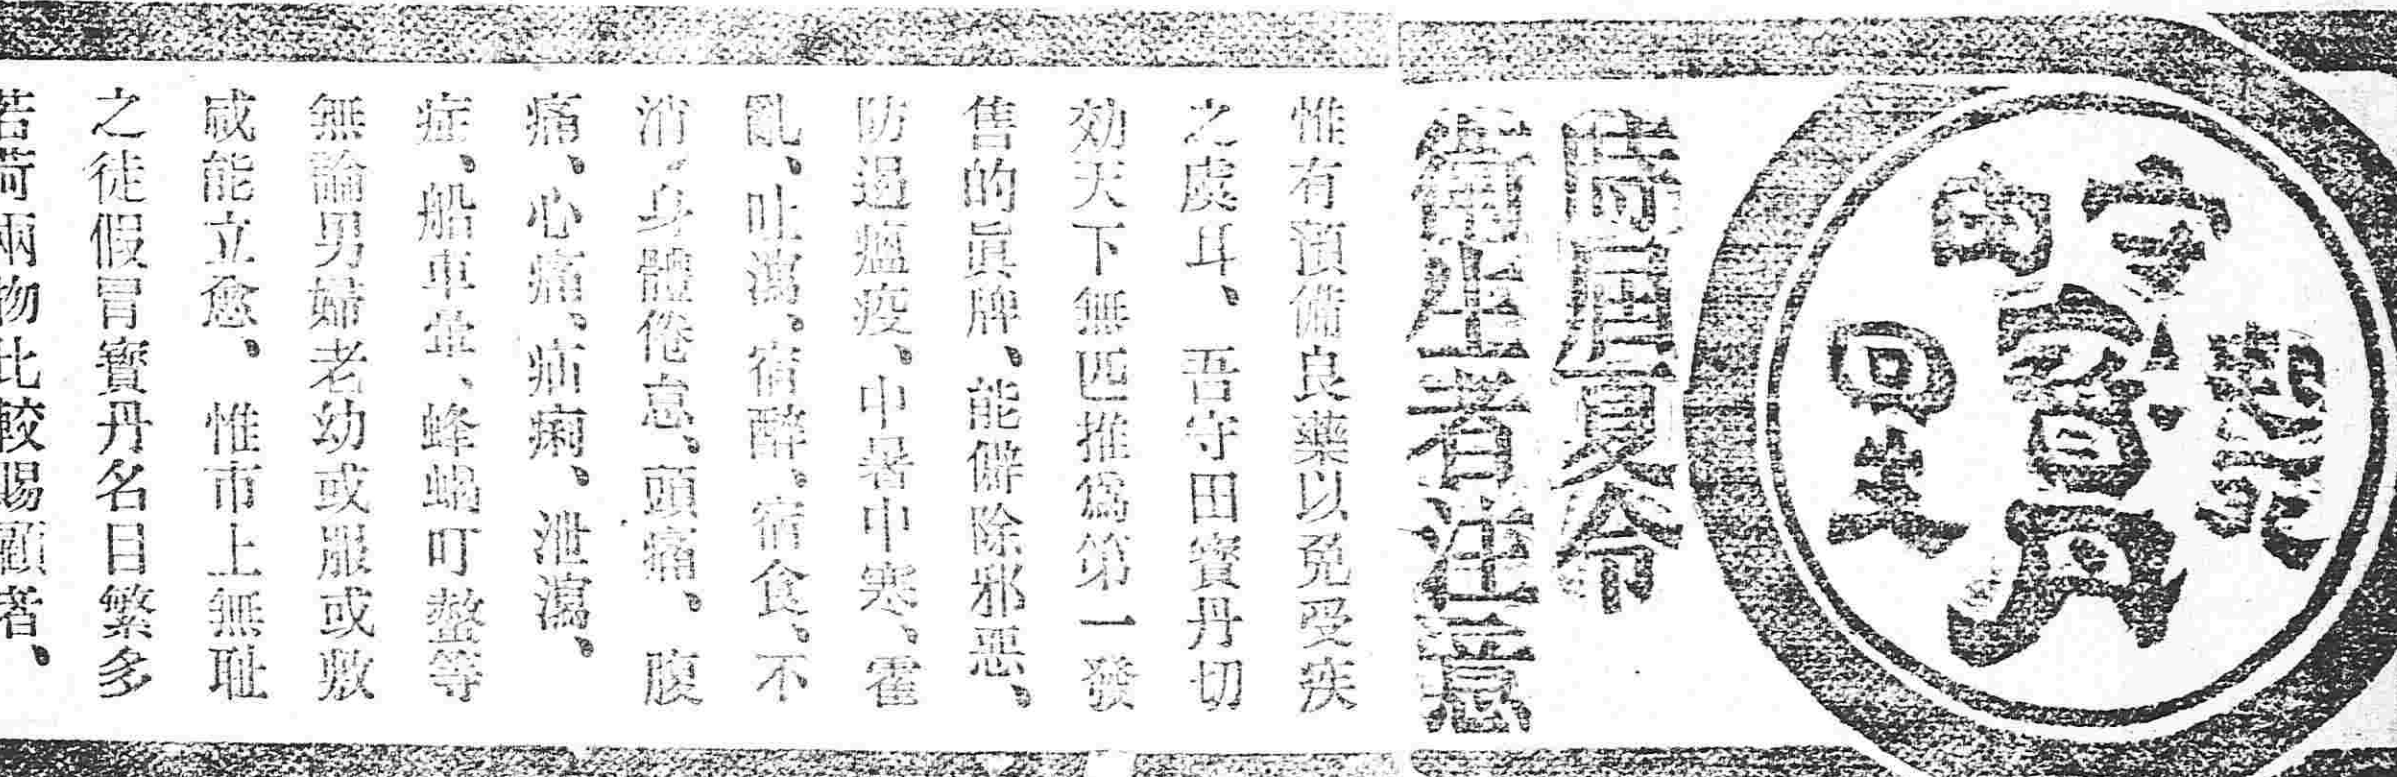 守田
寶丹
起死
回生
時屆夏令
衛生者注意
惟有預備良藥以免受疾
之處耳、吾守田寶丹切
効天下無匹推爲第一發
售的眞牌、能僻除邪惡、
防過瘟疫、中暑中寒、霍
亂、吐瀉、宿醉、宿食、不
消、身體倦怠、頭痛、腹
痛、心痛、疝痢、泄瀉、
症、船車暈、蜂蝎叮螫等
無論男婦老幼或服或敷
咸能立愈、惟市上無耻
之徒假冒寶丹名目繁多
若荷兩物比較賜顧者、